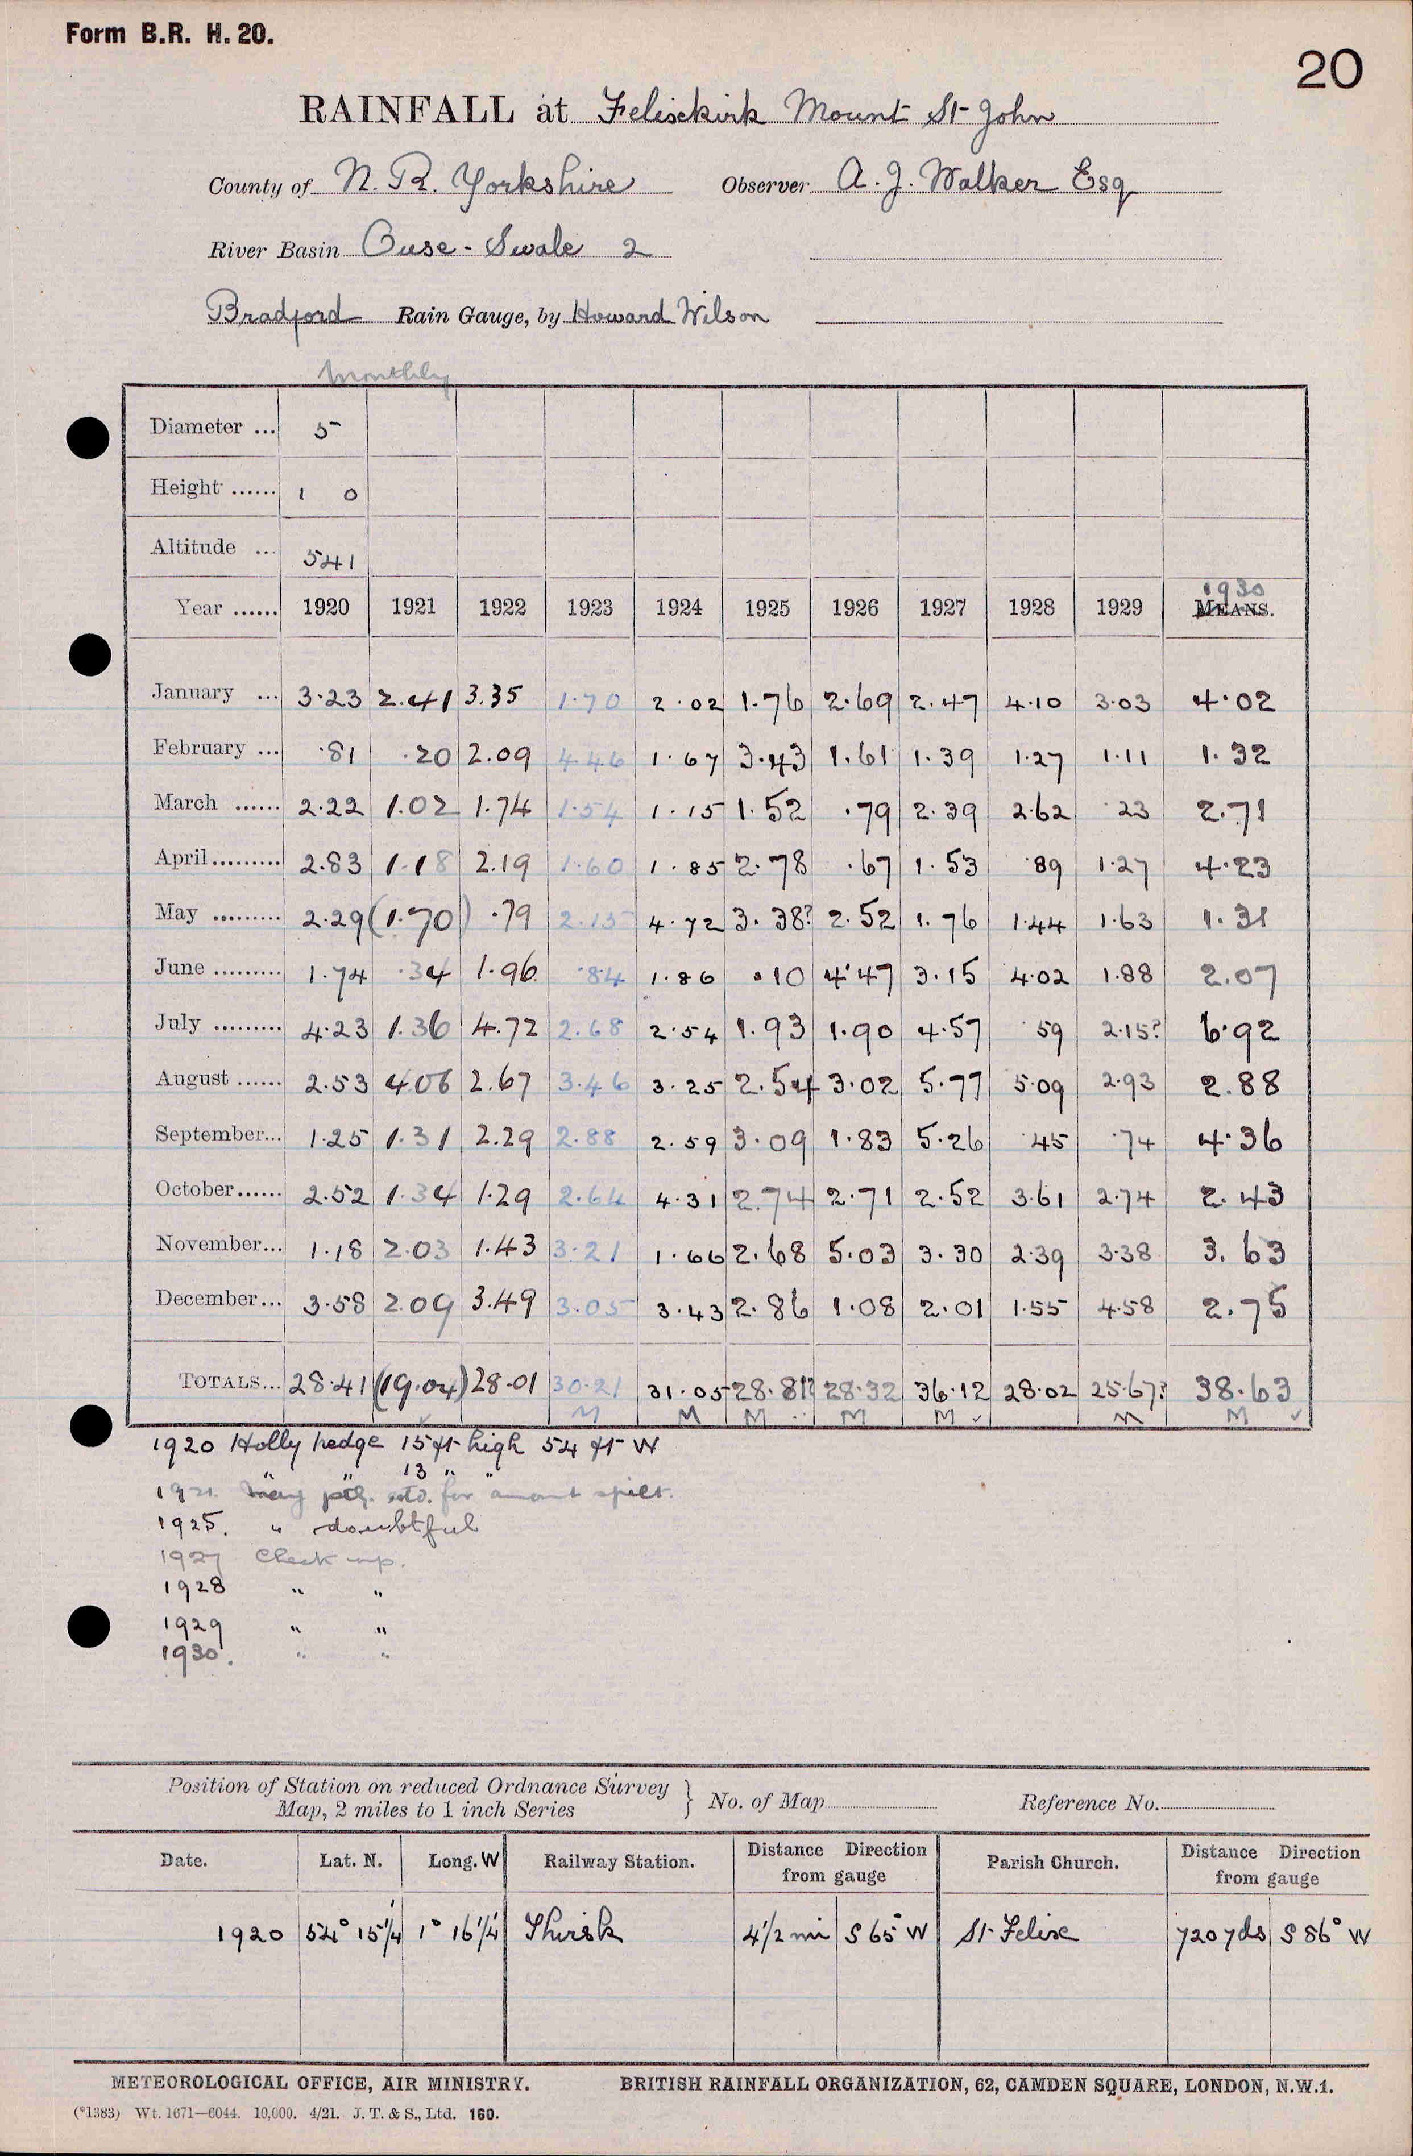 Form B.R. H. 20.
20
RAINFALL at Felixkirk Mount St John
County of N. R. Yorkshire Observer A. J. Walker Esq
River Basin Ouse - Swale 2
Bradford Rain Gauge, by Howard Wilson
Monthly
Diameter ... 5
Height ...... 1 0
Altitude ... 541
1930
Year ...... 1920 1921 1922 1923 1924 1925 1926 1927 1928 1929 MEANS.
January ... 3.23 2.41 3.35 1.70 2.02 1.76 2.69 2.47 4.10 3.03 4.02
February ... .81 .20 2.09 4.46 1.67 3.43 1.61 1.39 1.27 1.11 1.32
March ...... 2.22 1.02 1.74 1.54 1.15 1.52 .79 2.39 2.62 .23 2.71
April ......... 2.83 1.18 2.19 1.60 1.85 2.78 .67 1.53 .89 1.27 4.23
May ......... 2.29 (1.70) .79 2.15 4.72 3.38? 2.52 1.76 1.44 1.63 1.31
June ......... 1.74 .34 1.96 .84 1.86 .10 4.47 3.15 4.02 1.88 2.07
July ......... 4.23 1.36 4.72 2.68 2.54 1.93 1.90 4.57 .59 2.15? 6.92
August ...... 2.53 4.06 2.67 3.46 3.25 2.54 3.02 5.77 5.09 2.93 2.88
September... 1.25 1.31 2.29 2.88 2.59 3.09 1.83 5.26 .45 .74 4.36
October...... 2.52 1.34 1.29 2.64 4.31 2.74 2.71 2.52 3.61 2.74 2.43
November... 1.18 2.03 1.43 3.21 1.66 2.68 5.03 3.30 2.39 3.38 3.63
December... 3.58 2.09 3.49 3.05 3.43 2.86 1.08 2.01 1.55 4.58 2.75
TOTALS... 28.41 (19.04) 28.01 30.21 31.05 28.81? 28.32 36.12 28.02 25.67? 38.63
✓ M M M M M ✓ M M ✓
1920 Holly hedge 15 ft high 54 ft W
" " 13 " "
1921. May for amount spilt.
1925. " doubtful
1927 Check up.
1928 " "
1929 " "
1930. " "
Position of Station on reduced Ordnance Survey
Map, 2 miles to 1 inch Series } No. of Map Reference No.
Date. Lat. N. Long. W Railway Station. Distance Direction from gauge Parish Church. Distance Direction from gauge
1920 54° 15'1/4 1° 16'1/4 Thirsk 4 1/2 mi S 65° W St Felix 720 yds S 86° W
METEOROLOGICAL OFFICE, AIR MINISTRY. BRITISH RAINFALL ORGANIZATION, 62, CAMDEN SQUARE, LONDON, N.W.1.
(*1383) Wt. 1671—6044. 10,000. 4/21. J. T. & S., Ltd. 160.